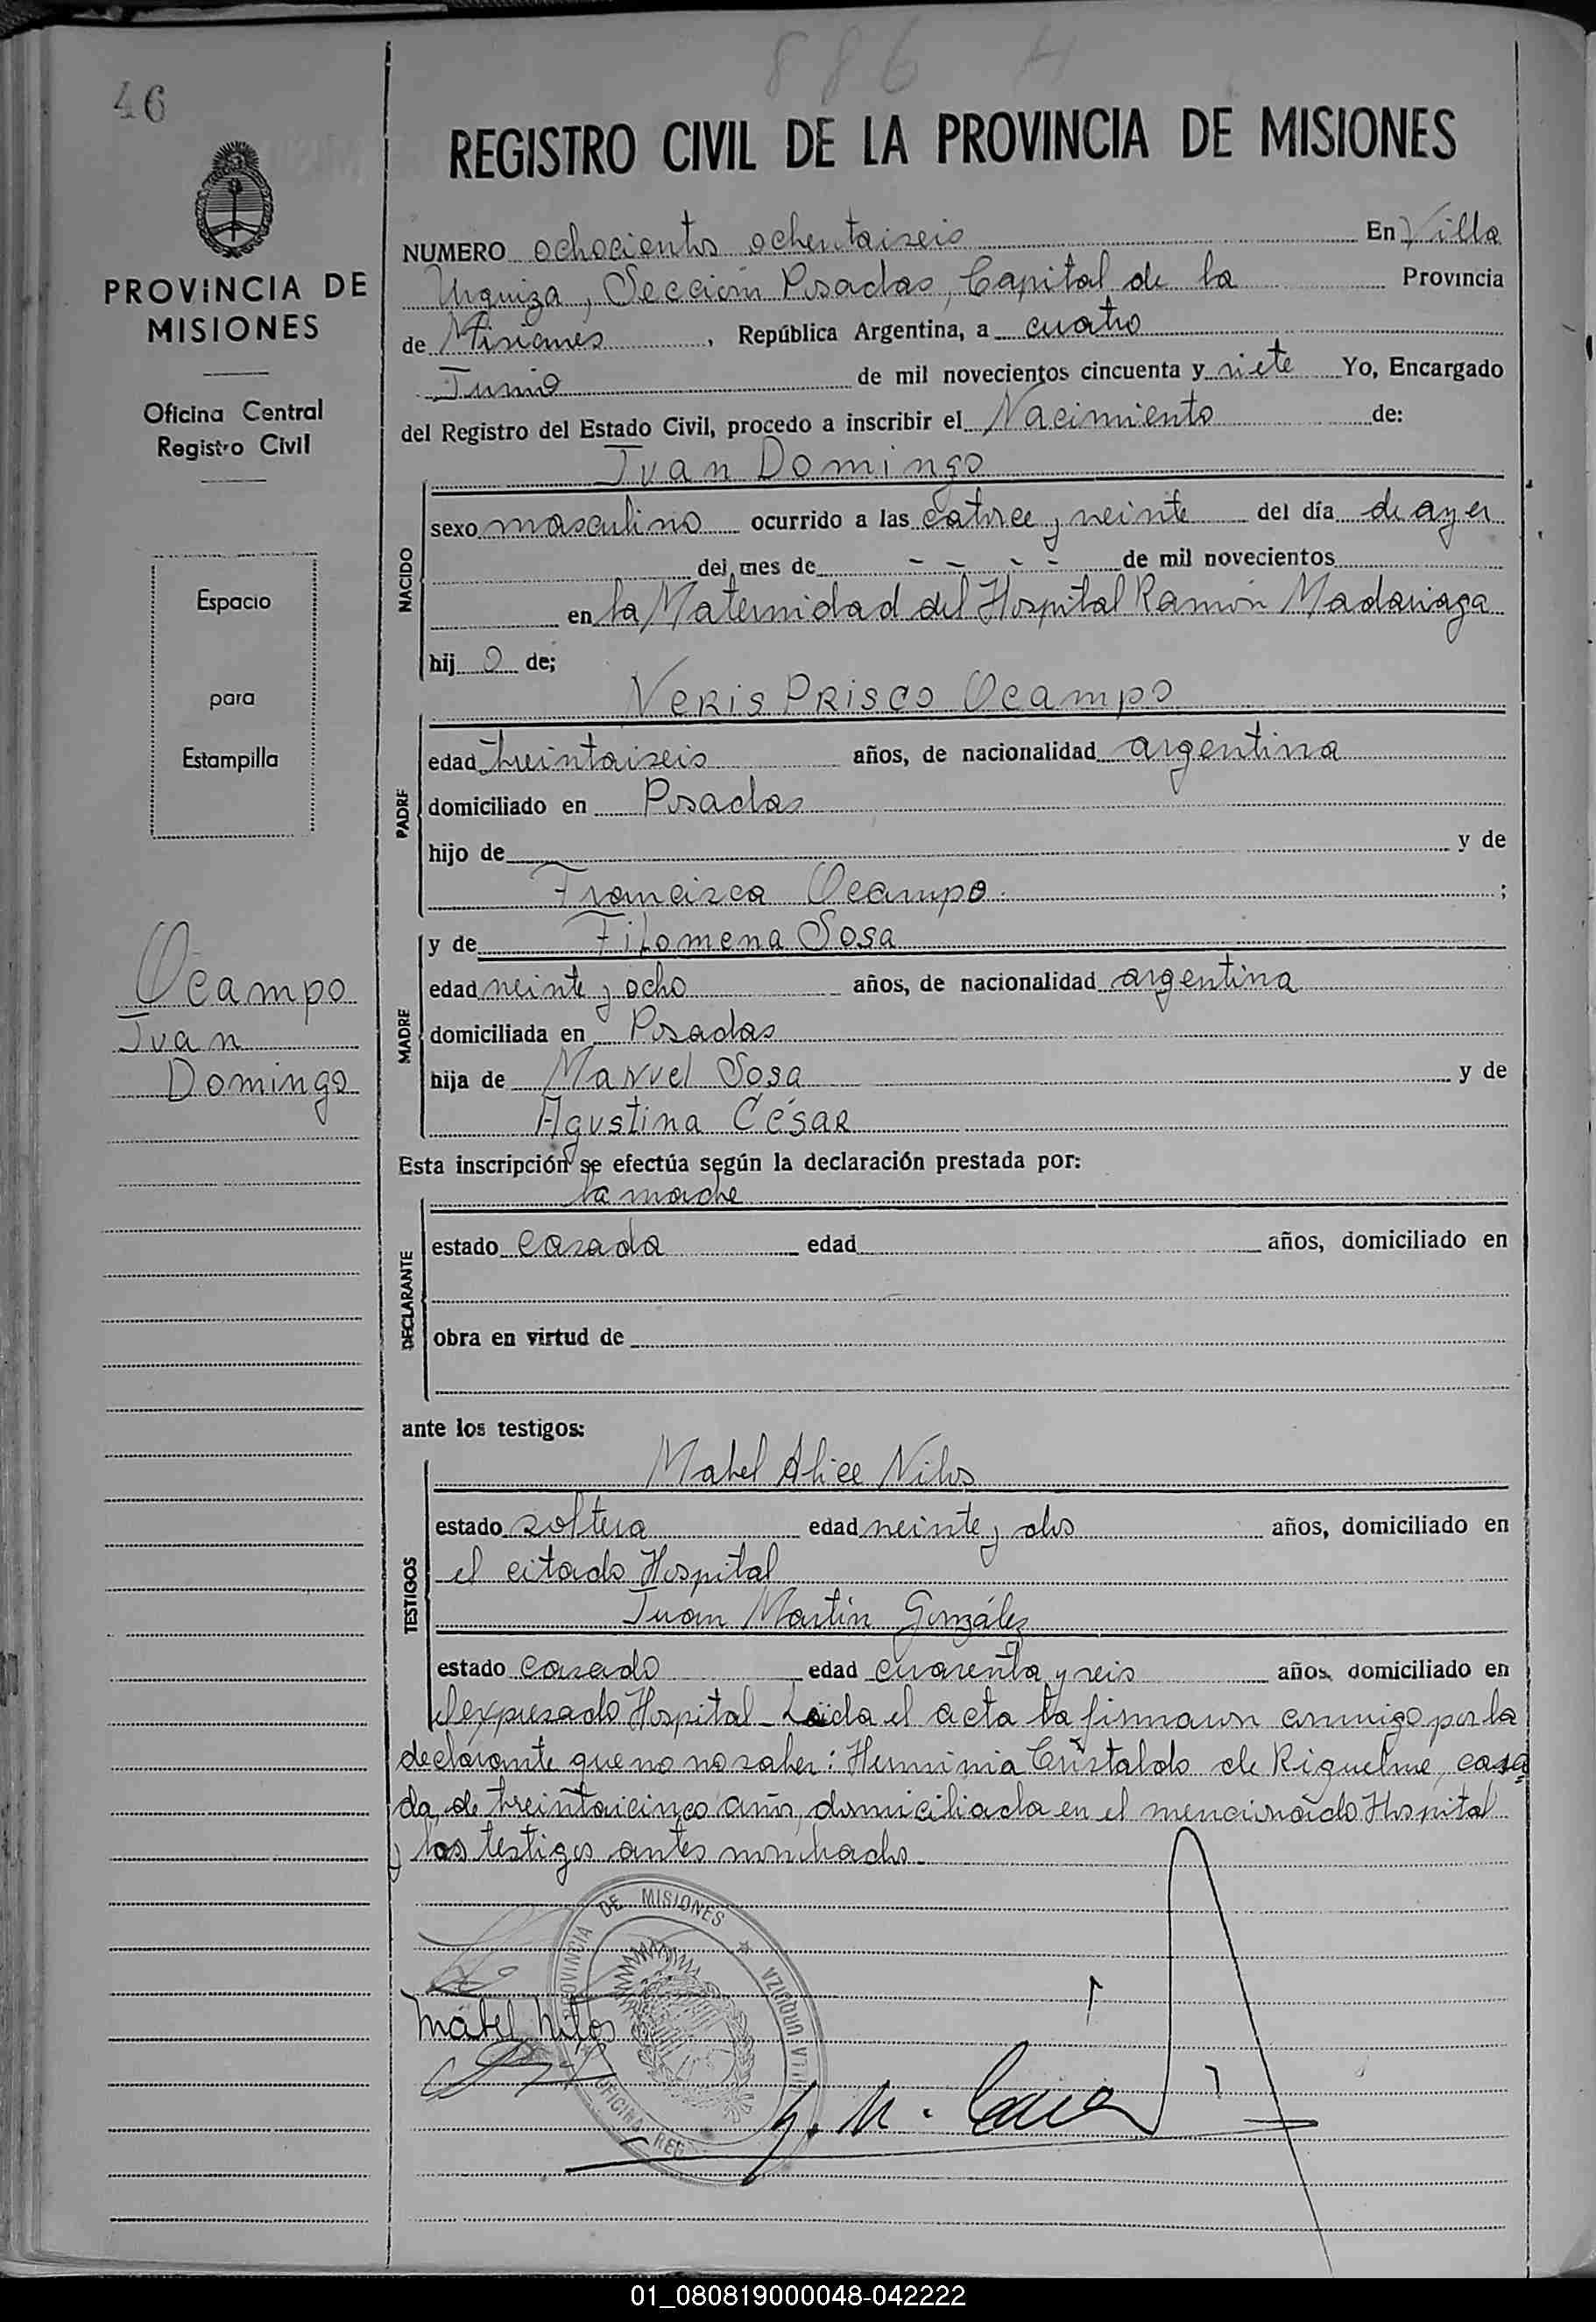 886 H
46
REGISTRO CIVIL DE LA PROVINCIA DE MISIONES
PROVINCIA DE
MISIONES
Oficina Central
Registro Civil
Espacio
para
Estampilla
Ocampo
Juan
Domingo
NUMERO ochocientos ochentaiseis En Villa
Urquiza, Sección Posadas, Capital de la Provincia
de Misiones, República Argentina, a cuatro
Junio de mil novecientos cincuenta y siete Yo, Encargado
del Registro del Estado Civil, procedo a inscribir el Nacimiento de:
Juan Domingo
NACIDO
sexo masculino ocurrido a las catorce y veinte del día de ayer
del mes de - - - - de mil novecientos
en la Maternidad del Hospital Ramón Madariaga
hij o de;
Neris Prisco Ocampo
PADRE
edad treintaiseis años, de nacionalidad argentina
domiciliado en Posadas
hijo de y de
Francisca Ocampo ;
y de Filomena Sosa
MADRE
edad veinte y ocho años, de nacionalidad argentina
domiciliada en Posadas
hija de Manuel Sosa y de
Agustina César
Esta inscripción se efectúa según la declaración prestada por:
la madre
DECLARANTE
estado casada edad años, domiciliado en
obra en virtud de
ante los testigos:
Mabel Alice Nilos
TESTIGOS
estado soltera edad veinte y ocho años, domiciliado en
el citado Hospital
Juan Martin González
estado casado edad cuarenta y seis años, domiciliado en
el expresado Hospital - Leída el acta la firmaron conmigo por la
declarante que no no saber: Herminia Cristaldo de Riquelme, casa
da, de treintaicinco años, domiciliada en el mencionado Hospital
y los testigos antes nombrados.
PROVINCIA DE MISIONES
VILLA URQUIZA
OFICINA REG
Mabel Nilos
01_080819000048-042222